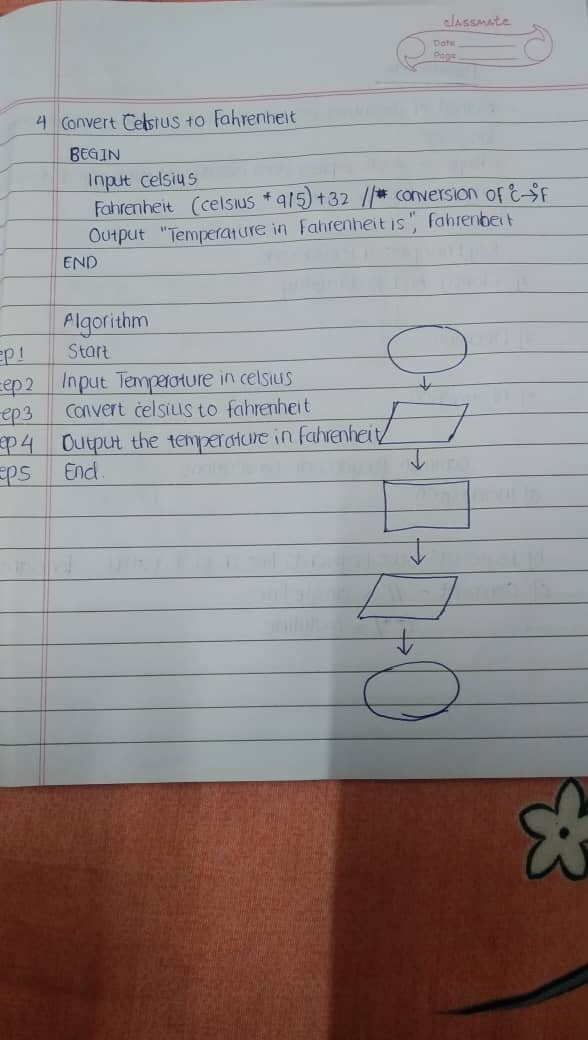 classmate
Date
Page
4 Convert Celsius to Fahrenheit
BEGIN
Input celsius
Fahrenheit (celsius * 9/5) + 32 //* conversion of °C→°F
Output "Temperature in Fahrenheit is", Fahrenheit
END
Algorithm
ep1 Start
tep2 Input Temperature in celsius
ep3 Convert celsius to fahrenheit
ep4 Output the temperature in Fahrenheit
ep5 End.